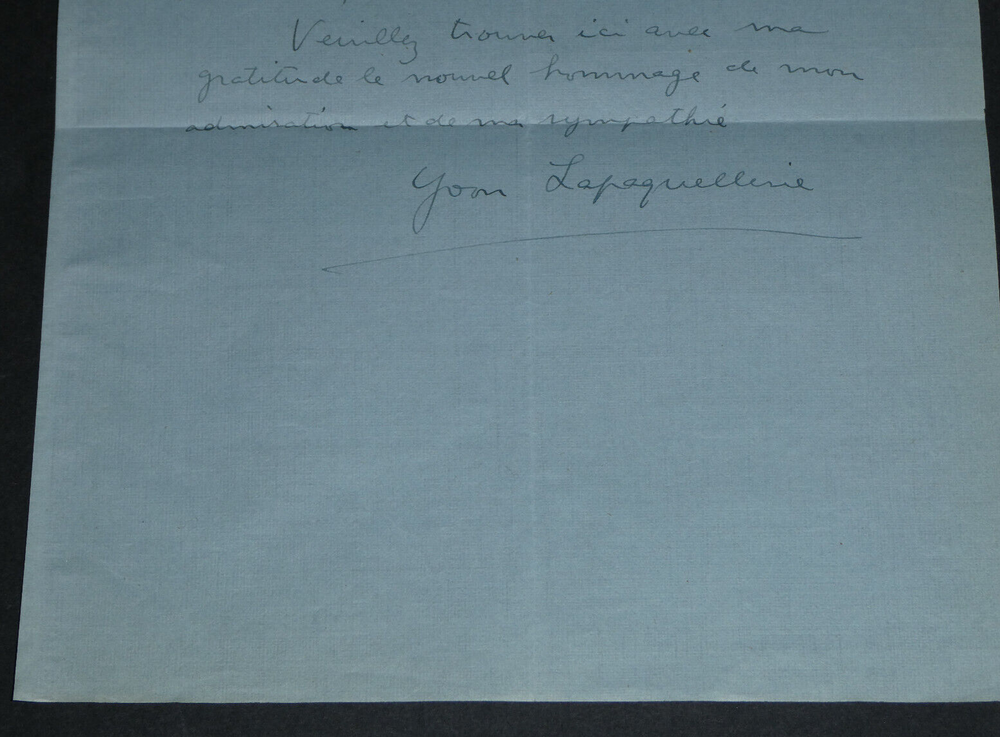 Veuillez trouver ici avec ma
gratitude le nouvel hommage de mon
admiration et de ma sympathie
Yvon Lapaquellerie